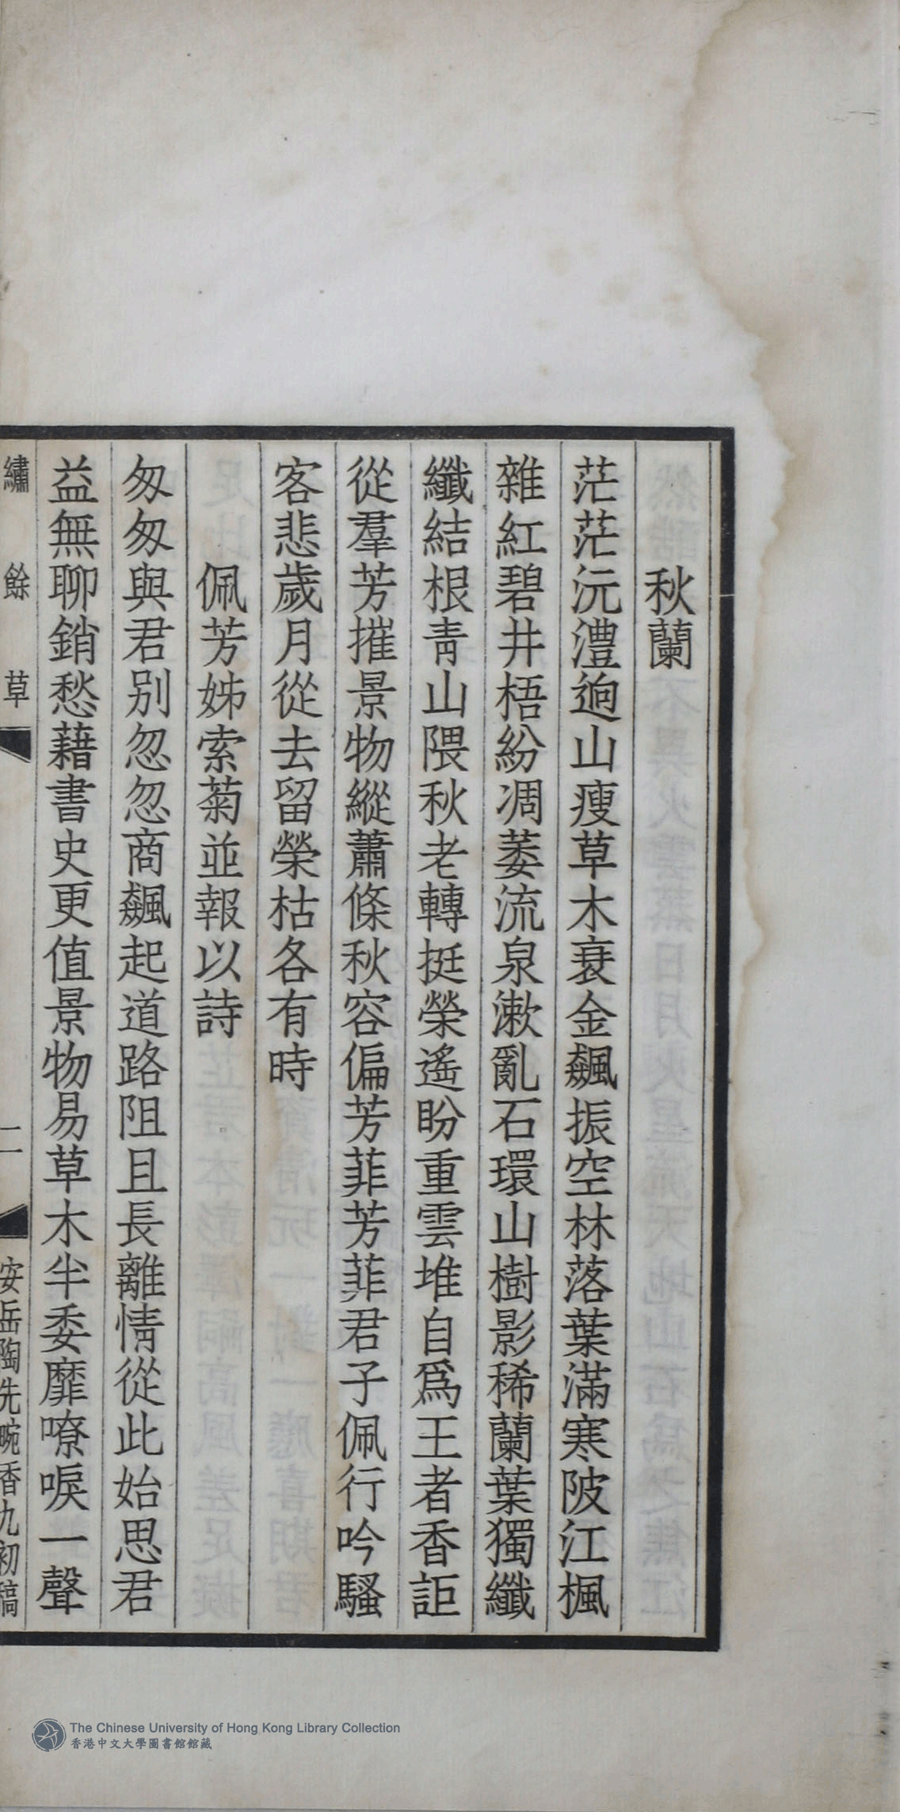 秋蘭
茫茫沅澧逈山瘦草木衰金飆振空林落葉滿寒陂江楓
雜紅碧井梧紛凋萎流泉漱亂石環山樹影稀蘭葉獨纖
纖結根青山隈秋老轉挺榮遙盼重雲堆自爲王者香詎
從羣芳摧景物縱蕭條秋容偏芳菲芳菲君子佩行吟騷
客悲歲月從去留榮枯各有時
佩芳姊索菊並報以詩
匆匆與君別忽忽商飆起道路阻且長離情從此始思君
益無聊銷愁藉書史更值景物易草木半委靡嘹唳一聲
繡餘草
二
安岳陶先畹香九初稿
The Chinese University of Hong Kong Library Collection
香港中文大學圖書館館藏